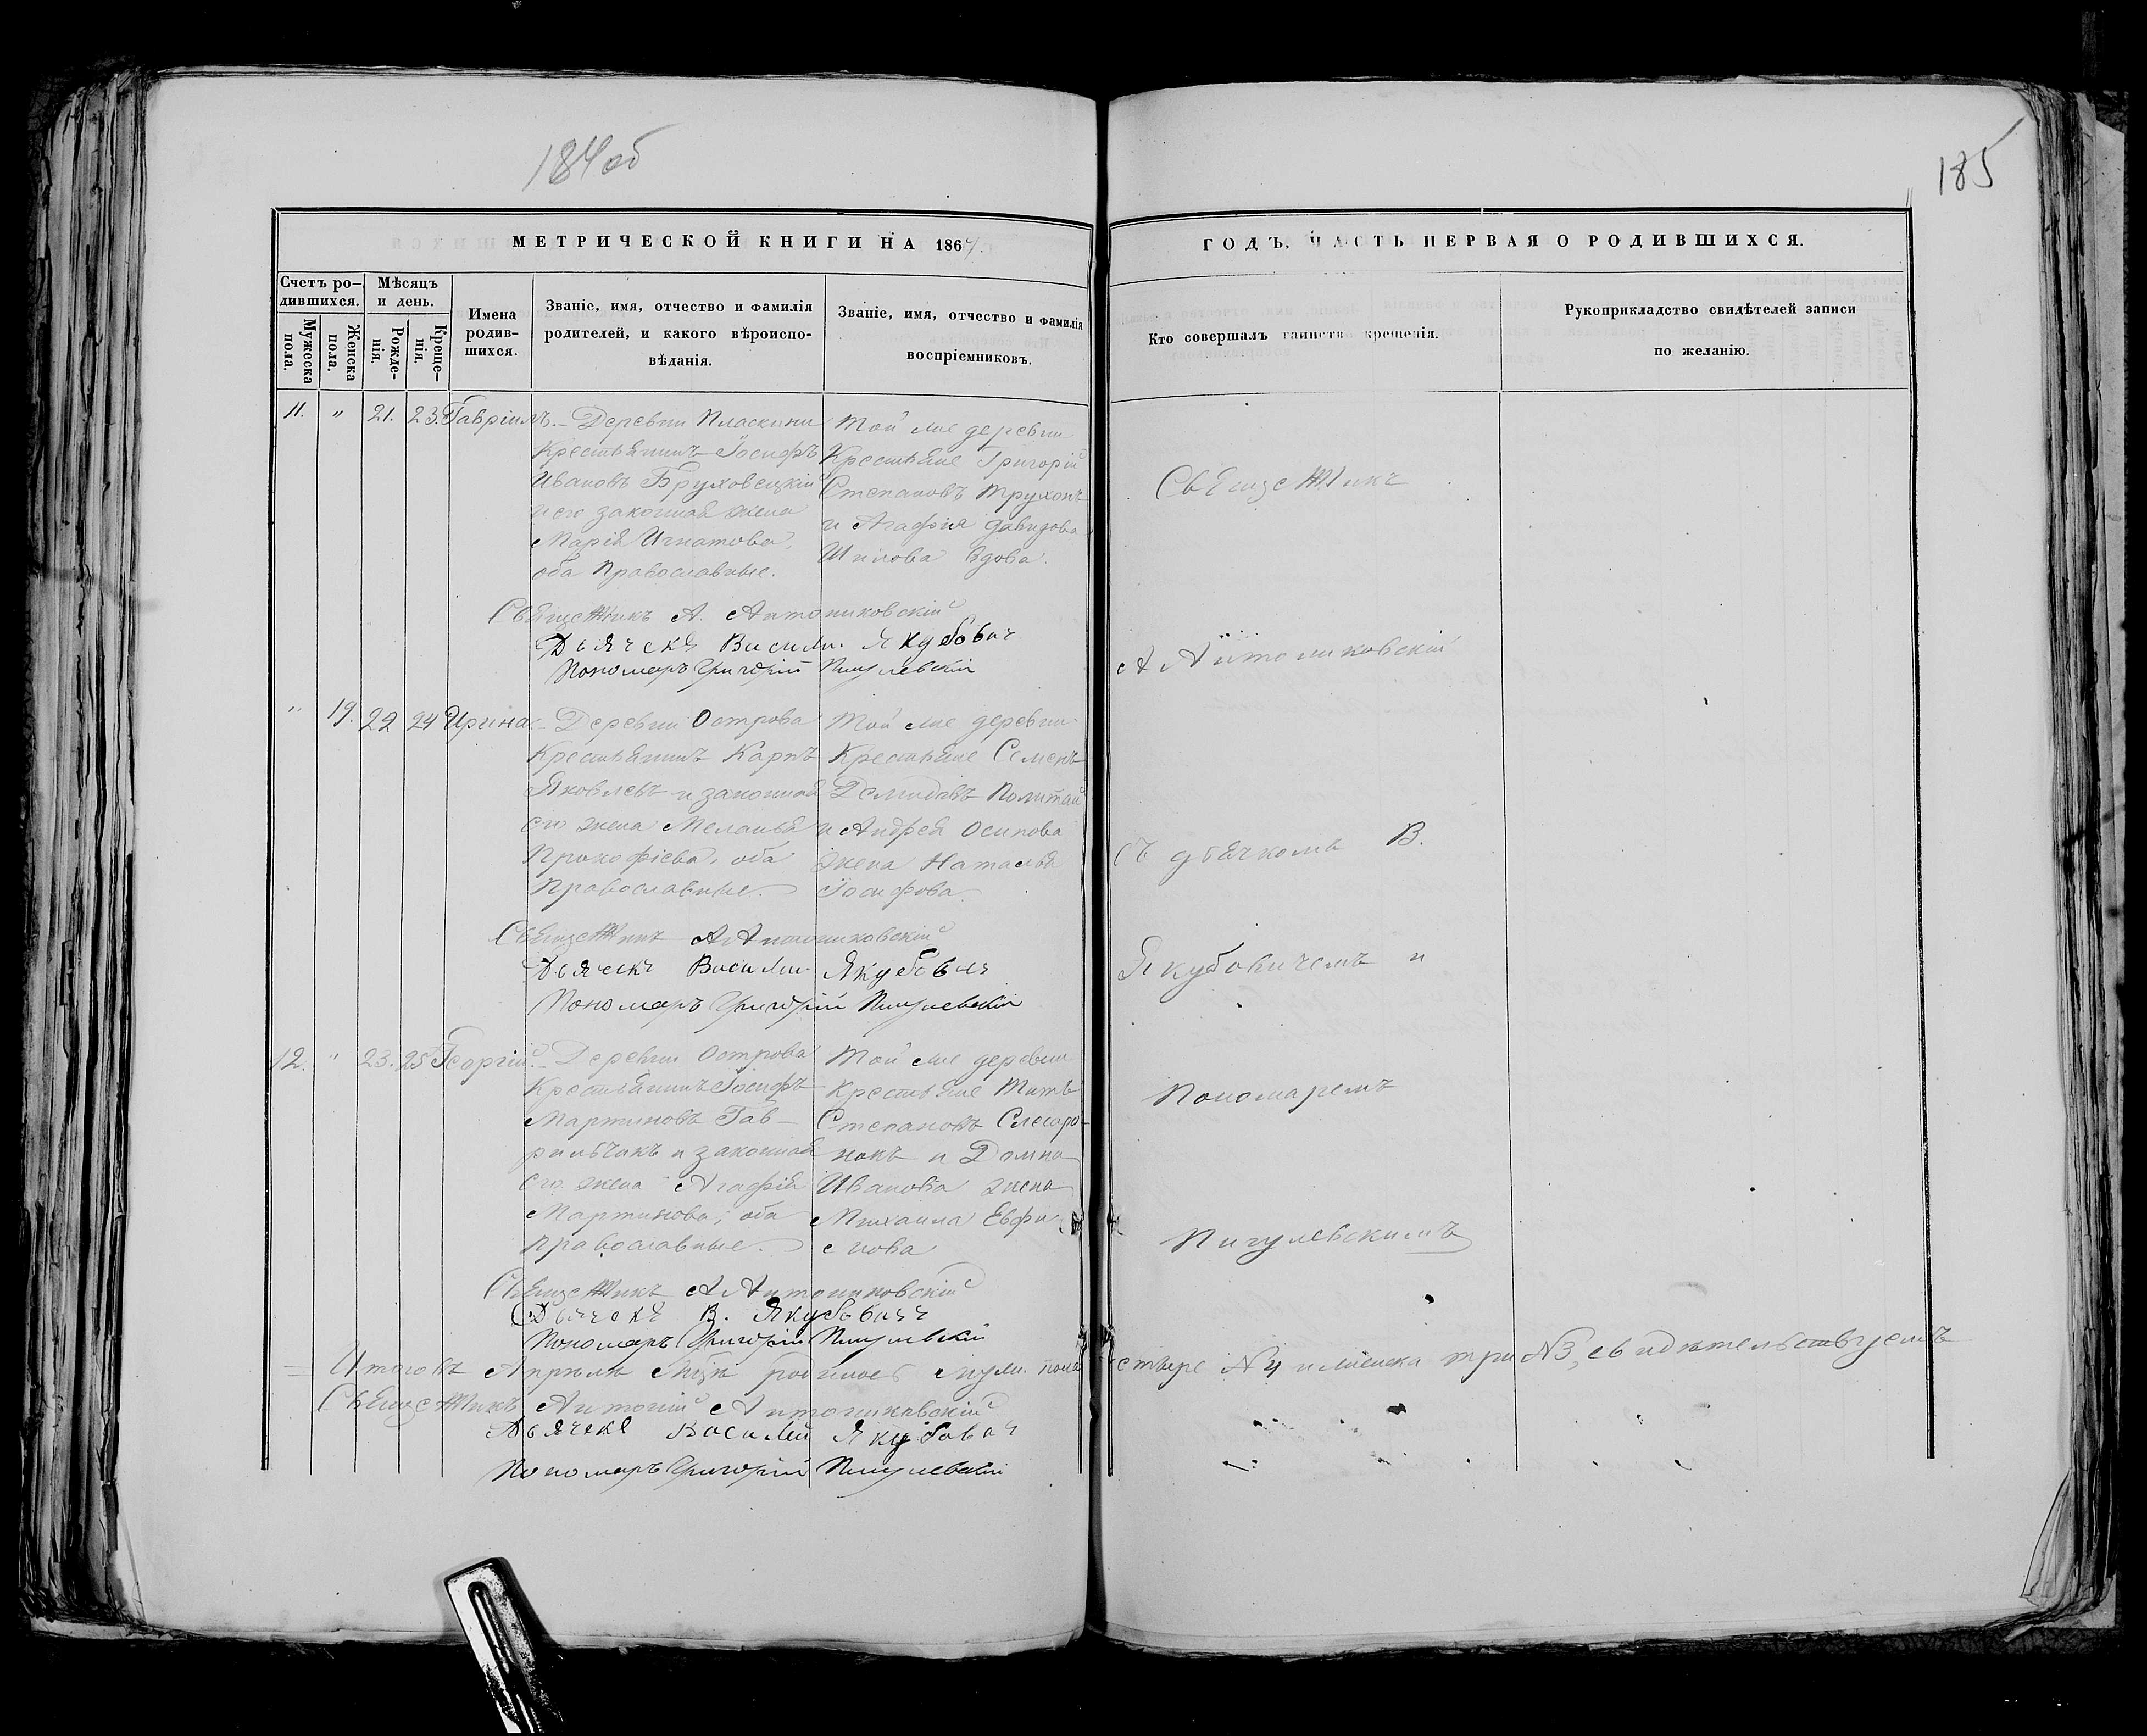 184 об
185
МЕТРИЧЕСКОЙ КНИГИ НА 1867.
ГОДЪ. ЧАСТЬ ПЕРВАЯ О РОДИВШИХСЯ.
Счетъ ро-
дившихся.
Мужеска
пола.
Женска
пола.
Мѣсяцъ
и день.
Рожде-
нія.
Креще-
нія.
Имена
родив-
шихся.
Званіе, имя, отчество и фамилія
родителей, и какого вѣроиспо-
вѣданія.
Званіе, имя, отчество и фамилія
воспріемниковъ.
Кто совершалъ таинство крещенія.
Рукоприкладство свидѣтелей записи
по желанію.
11. " 21. 23. Гавріилъ.
Деревни Пласкини
Крестьянинъ Іосифъ
Ивановъ Бруховецкій
и его законная жена
Марія Игнатова,
оба Православные.
Той же деревни
Крестьяне Григорій
Степановъ Трухонъ
и Агафія Давидова
Шилова вдова.
Священникъ А. Антониковскій
Дьячекъ Василий Якубович
Пономаръ Григорій Пигулевскій
" 19. 22 24 Ирина
Деревни Острова
Крестьянинъ Карпъ
Яковлевъ и законная
его жена Меланья
Прокофіева, оба
Православные.
Той же деревни
Крестьяне Семенъ
Демидовъ
и Андрея Осипова
жена Наталья
Іосифова.
Священникъ А Антониковскій
Дьячекъ Василий Якубович
Пономаръ Григорій Пигулевскій
12. " 23. 25 Георгій.
Деревни Острова
Крестьянинъ Іосифъ
Мартиновъ Гав-
рильчикъ и законная
его жена Агафія
Мартинова, оба
Православные.
Той же деревни
Крестьяне Титъ
Степановъ Слесаро-
нокъ и Домна
Иванова жена
Михаила Евфи-
мова
Священникъ А Антониковскій
Дьячекъ В. Якубович
Пономаръ Григорій Пигулевскій
Итого въ Апрѣлѣ родилось муж. пола четыре N 4 и женска три N 3, свидѣтельствуемъ
Священникъ Антоній Антониковскій
Дьячекъ Василий Якубович
Пономаръ Григорій Пигулевскій
Священникъ
А Антониковскій
съ дьячкомъ В.
Якубовичемъ и
Пономаремъ
Пигулевскимъ